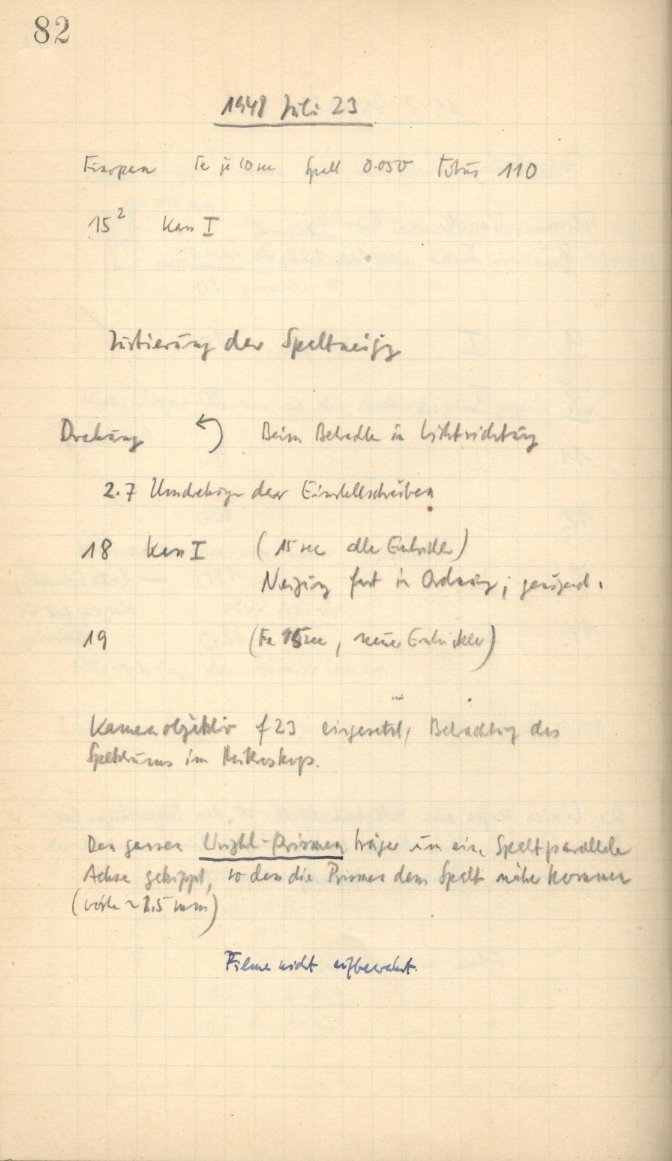 82
1948 Juli 23
Fe je 10 sec Spalt 0.050 Fokus 110
15² Kass I
Justierung der Spaltneigg
Drehung ↶ Beim Betrachten in Lichtrichtung
2.7 Umdrehungen der Einstellscheiben
18 Kass I (15 sec alter Entwickler)
Neigung fast in Ordnung, genügend.
19 (Fe 15 sec, neuer Entwickler)
Kameraobjektiv f 23 eingesetzt, Betrachtung des
Spektrums im Mikroskop.
Den ganzen Prismen träger um eine Spaltparallele
Achse gekippt, so dass die Prismen dem Spalt näher kommen
(vorne ~ 1.5 mm)
Filme nicht aufbewahrt.